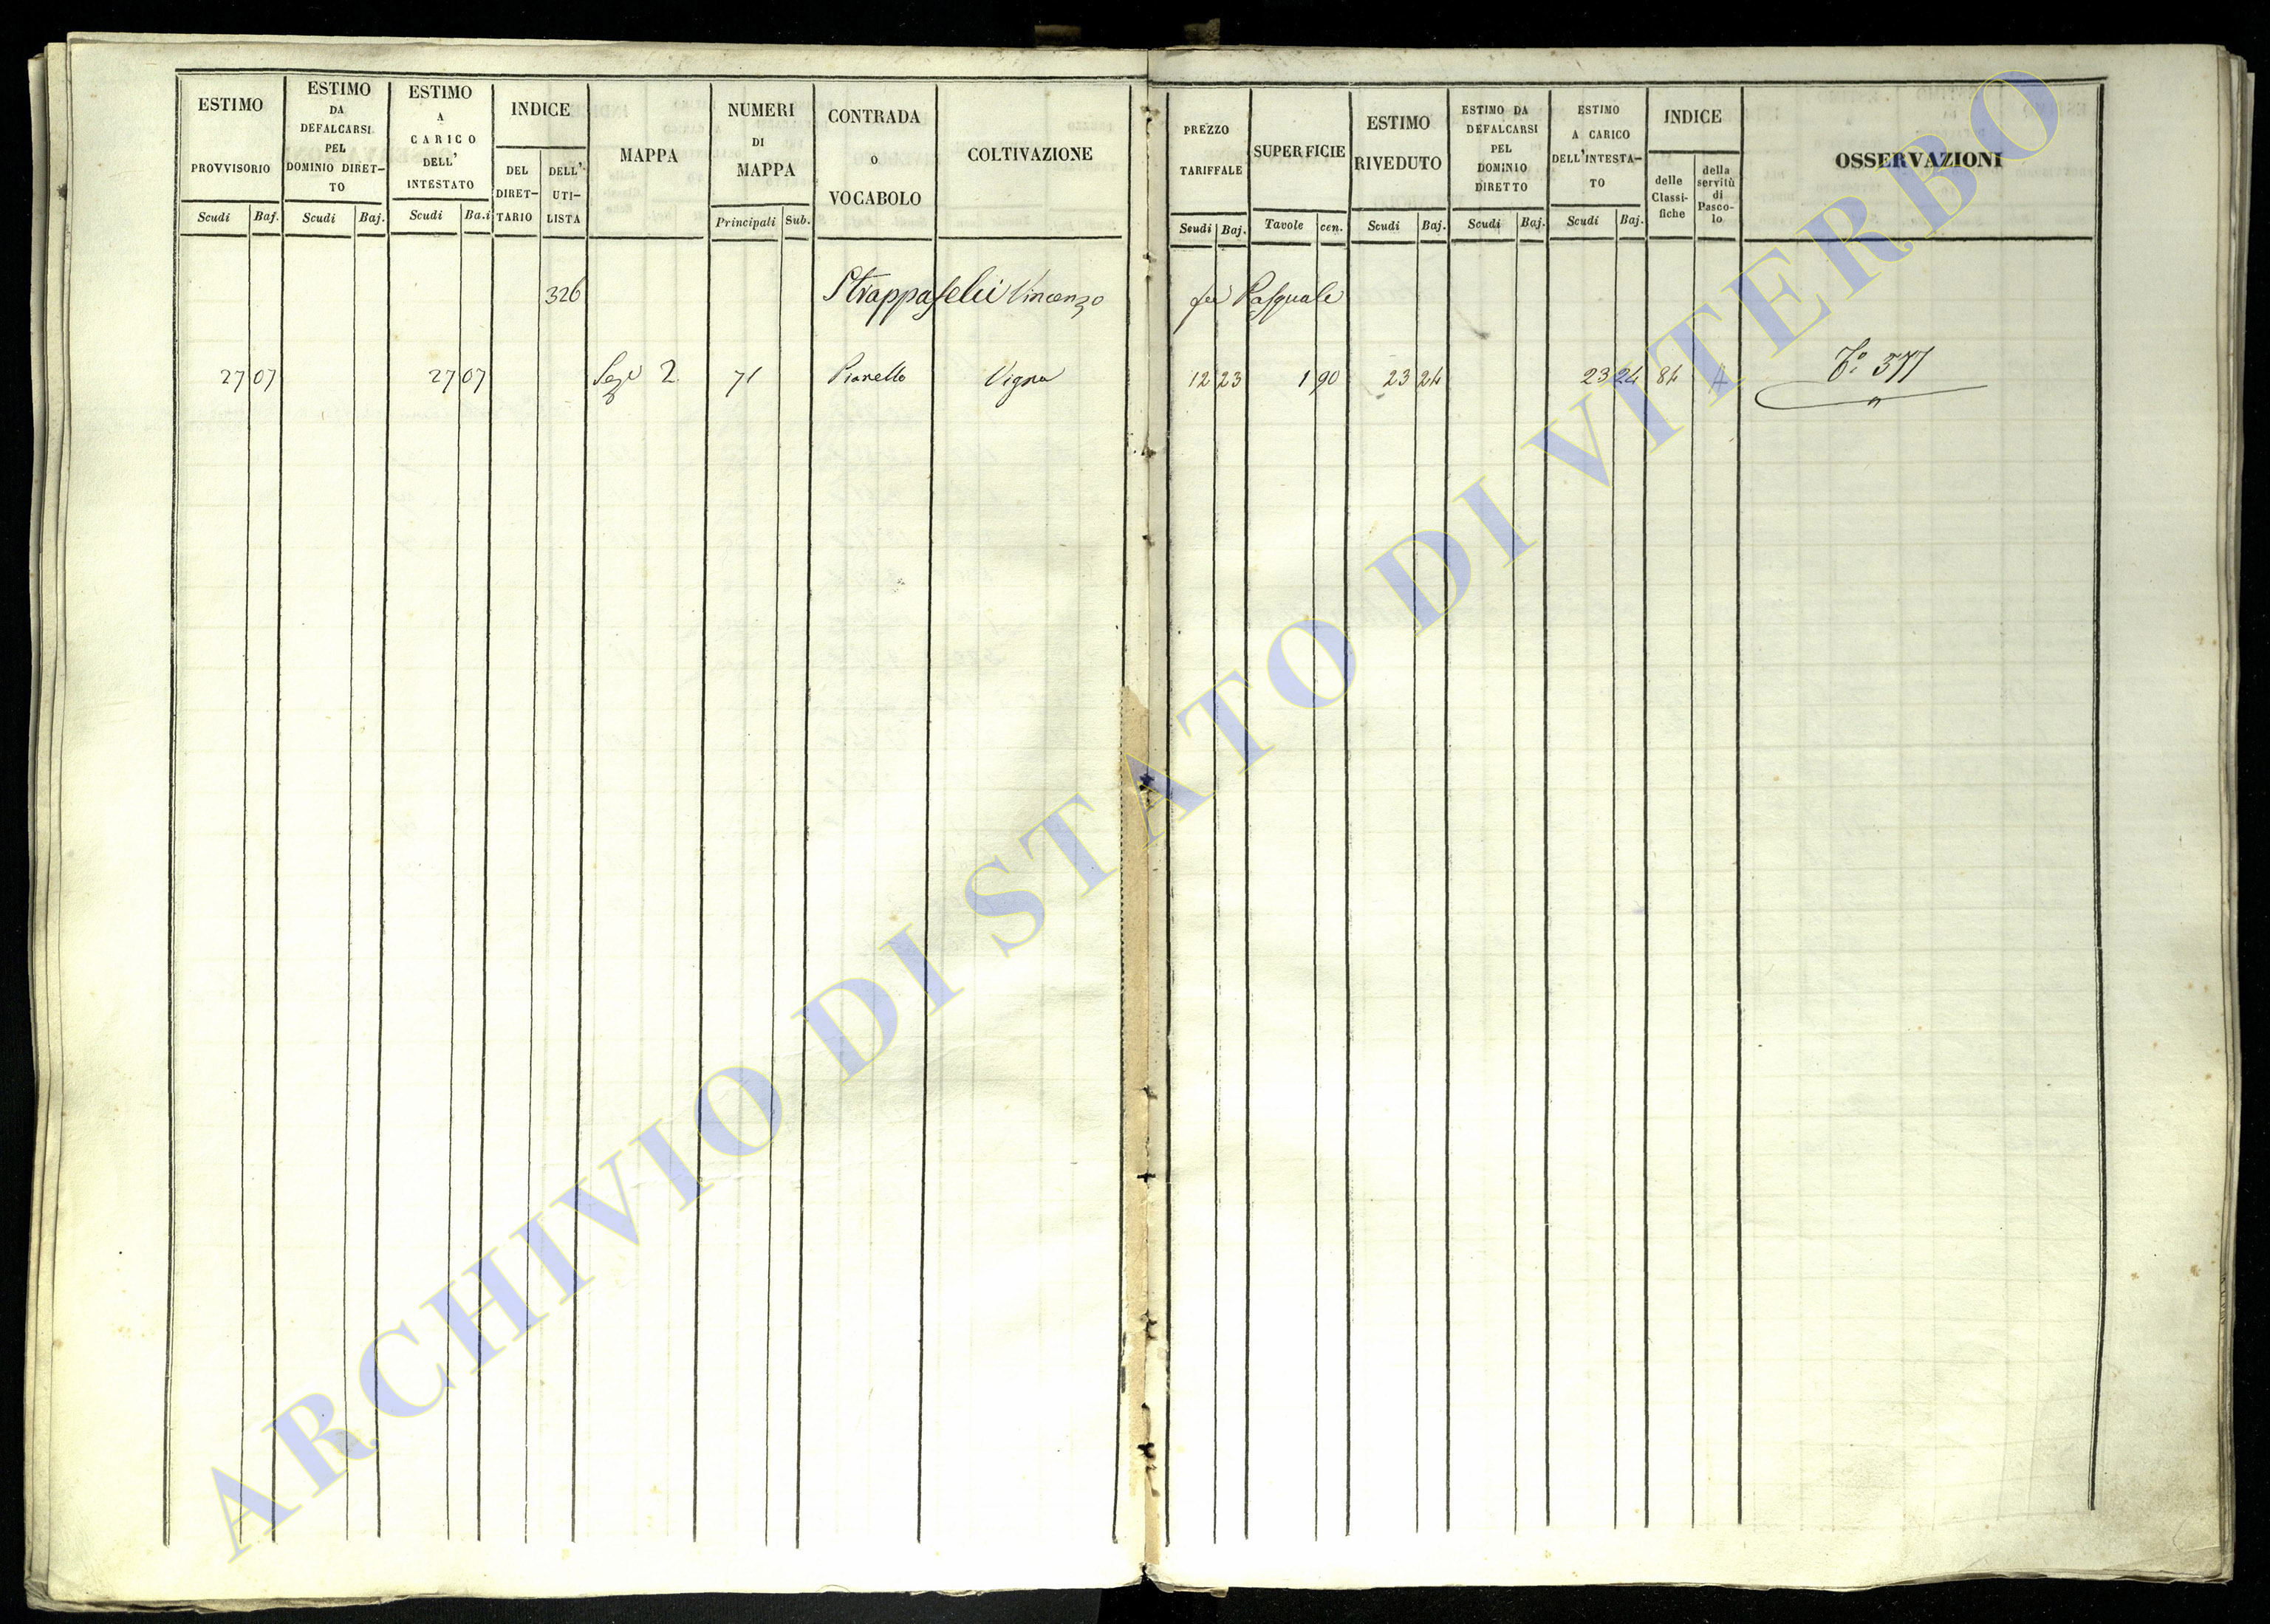 ESTIMO PROVVISORIO
Scudi Baj.
ESTIMO DA DEFALCARSI PEL DOMINIO DIRETTO
Scudi Baj.
ESTIMO A CARICO DELL' INTESTATO
Scudi Ba.i
INDICE
DEL DIRETTARIO
DELL' UTILISTA
MAPPA
NUMERI DI MAPPA
Principali Sub.
CONTRADA O VOCABOLO
COLTIVAZIONE
PREZZO TARIFFALE
Scudi Baj.
SUPERFICIE
Tavole cen.
ESTIMO RIVEDUTO
Scudi Baj.
ESTIMO DA DEFALCARSI PEL DOMINIO DIRETTO
Scudi Baj.
ESTIMO A CARICO DELL'INTESTATO
Scudi Baj.
INDICE
delle Classifiche
della servitù di Pascolo
OSSERVAZIONI
326 Strappafelci Vincenzo fu Pasquale
27 07 27 07 Sez.e 2 71 Pianello Vigna 12 23 1 90 23 24 23 24 84 A 377
ARCHIVIO DI STATO DI VITERBO